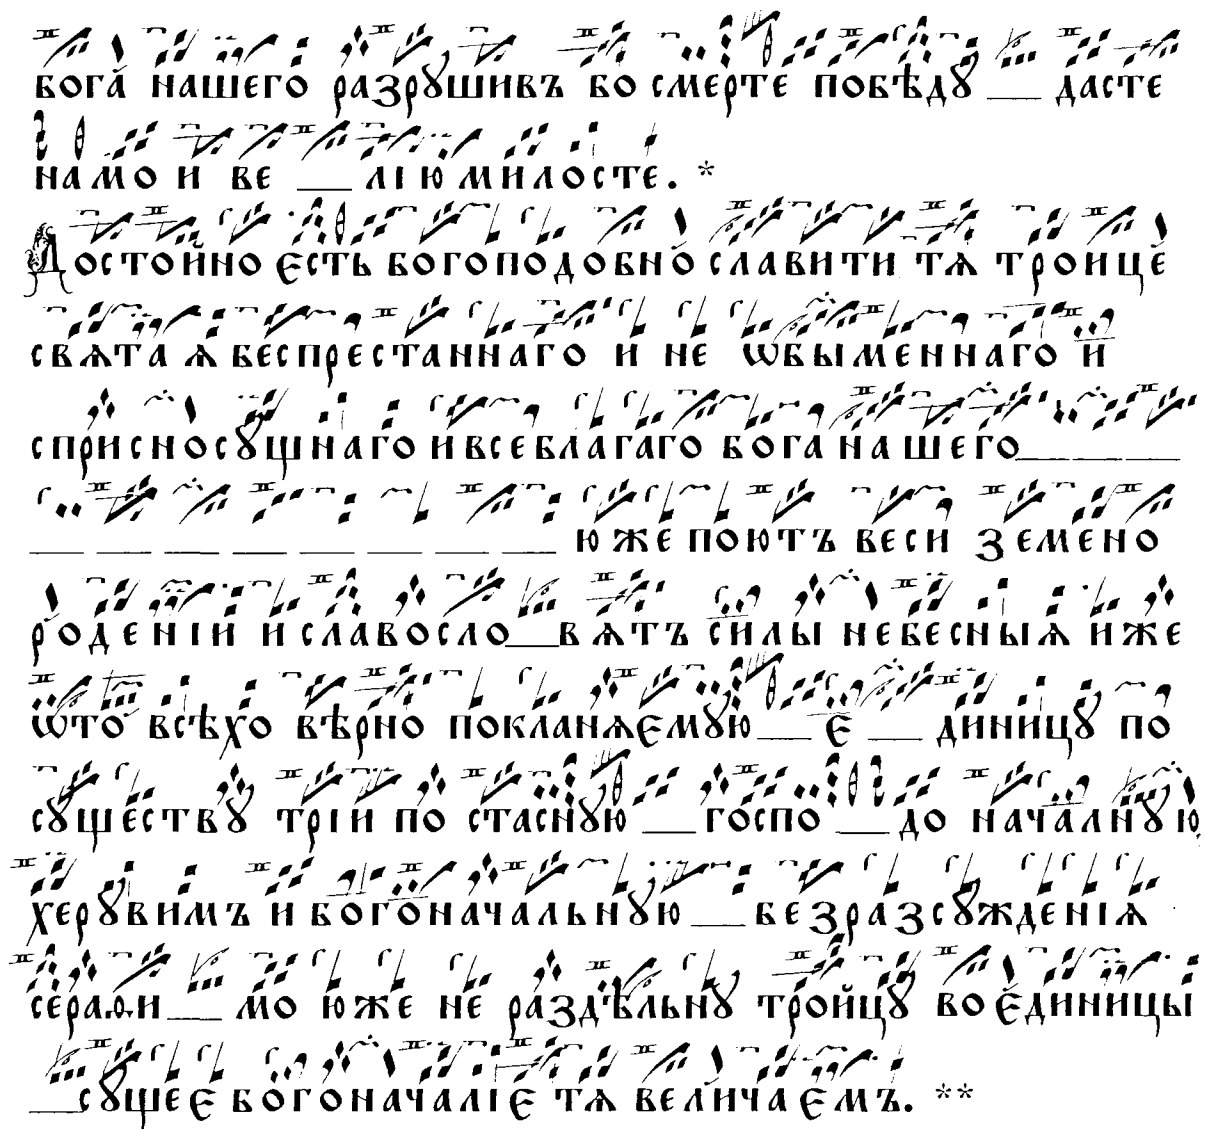 бога нашего разрꙋшивъ во смерте побѣдꙋ __ дасте
намо и ве __ лію милосте. *
Достойно єсть богоподобно славити тѧ троице
свѧтаѧ беспрестаннаго и не ѡбыменнаго и
сприсносꙋщнаго и всеблагаго бога нашего__ __ __
__ __ __ __ __ __ __ __ юже поютъ веси земено
роденіи и славосло__вѧтъ силы небесныѧ иже
ѡто всѣхо вѣрно покланѧємꙋю__ є __ диницꙋ по
сꙋществꙋ тріи по стаснꙋю __ госпо __ до началнꙋю
херꙋвимъ и богоначальнꙋю __ безразсꙋжденіѧ
сераѳи__ мо юже не раздѣльнꙋ тройцꙋ во єдиницы
__сꙋщеє богоначаліє тѧ величаємъ. **